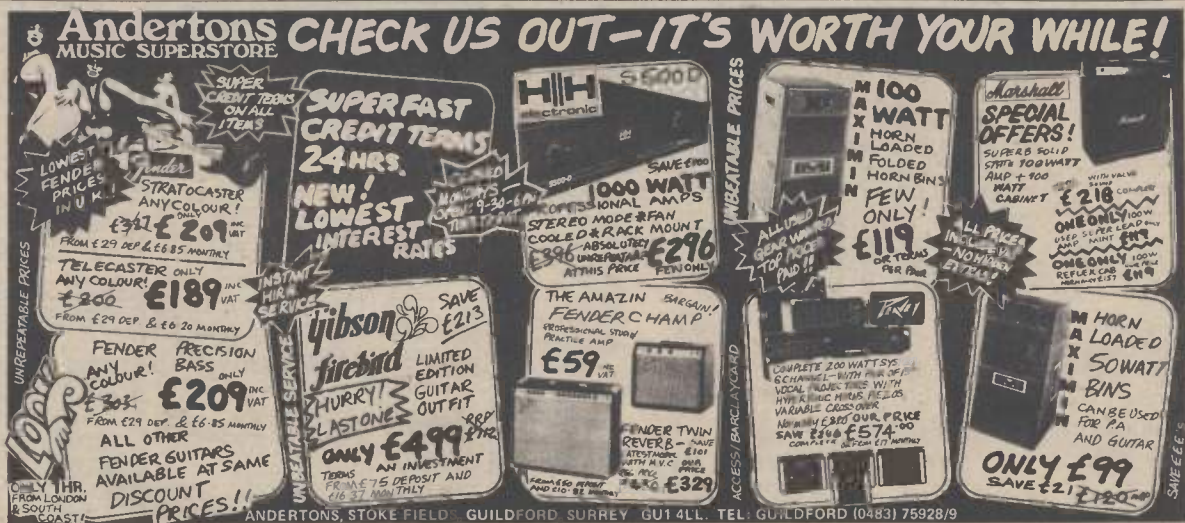 Andertons
MUSIC SUPERSTORE
CHECK US OUT-IT'S WORTH YOUR WHILE!
SUPER
CREDIT TERMS
ON ALL
ITEMS
LOWEST
FENDER
PRICES
IN U.K!
Fender
STRATOCASTER
ANY COLOUR!
ONLY
£209 INC
VAT
FROM £29 DEP & £6.85 MONTHLY
TELECASTER ONLY
ANY COLOUR!
£200 £189 INC
VAT
FROM £29 DEP. & £6.20 MONTHLY
UNREPEATABLE PRICES
FENDER PRECISION
ANY BASS
COLOUR! ONLY
£303 £209 INC
VAT
FROM £29 DEP. & £6.85 MONTHLY
ALL OTHER
FENDER GUITARS
AVAILABLE AT SAME
DISCOUNT
PRICES!!
LOOK
ONLY 1HR.
FROM LONDON
& SOUTH
COAST!
SUPER FAST
CREDIT TERMS
24 HRS.
NEW!
LOWEST
INTEREST
RATES
MONDAYS
OPEN 9-30-6PM
INSTANT
HIRE
SERVICE
UNBEATABLE SERVICE
Gibson
firebird
SAVE
£213
HURRY!
LAST ONE
LIMITED
EDITION
GUITAR
OUTFIT
ONLY £499 RRP
£712
TERMS AN INVESTMENT
FROM £75 DEPOSIT AND
£16.37 MONTHLY
HH
electronic
S500D
SAVE £100
1000 WATT
PROFESSIONAL AMPS
STEREO MODE & FAN
COOLED & RACK MOUNT
£396 ABSOLUTELY
UNREPEATABLE
AT THIS PRICE
£296
FEW ONLY
THE AMAZIN BARGAIN!
FENDER CHAMP
PROFESSIONAL STUDIO
PRACTICE AMP
£59 INC
VAT
FENDER TWIN
REVERB- SAVE
LATEST MODEL £101
WITH M.V.C OUR
PRICE
£329
FROM £50 DEPOSIT
UNBEATABLE PRICES
MAXIMIN
100
WATT
HORN
LOADED
FOLDED
HORN BINS
FEW
ONLY!
£119
OR TERMS
PER PAIR
ALL USED
GEAR WANTED
TOP PRICES
PAID!!
ACCESS/BARCLAYCARD
Peavey
COMPLETE 200 WATT SYS.
6 CHANNEL-WITH PAIR OF
VOCAL PROJECTORS WITH
VARIABLE CROSSOVER
OUR PRICE
£574.00
COMPLETE OR FROM £17 MONTHLY
Marshall
SPECIAL
OFFERS!
SUPERB SOLID
STATE 100 WATT
AMP + 100
WATT
CABINET
WITH VALVE
SOUND
£218 COMPLETE
ONE ONLY 100W
USED SUPER LEAD
AMP MINT £119
ONE ONLY 100W
REFLEX CAB
NORMALLY £157 £119
ALL PRICES
INCL. VAT
MAXIMIN
HORN
LOADED
50 WATT
BINS
CAN BE USED
FOR P.A
AND GUITAR
ONLY £99
SAVE £21
£120
SAVE £'£'£'s
ANDERTONS, STOKE FIELDS. GUILDFORD. SURREY GU1 4LL. TEL: GUILDFORD (0483) 75928/9